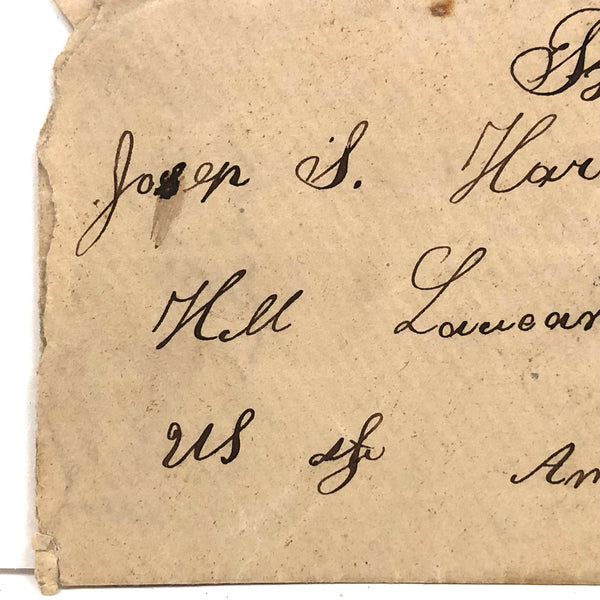 Josep S. Har
Hill Lancar
US of Am